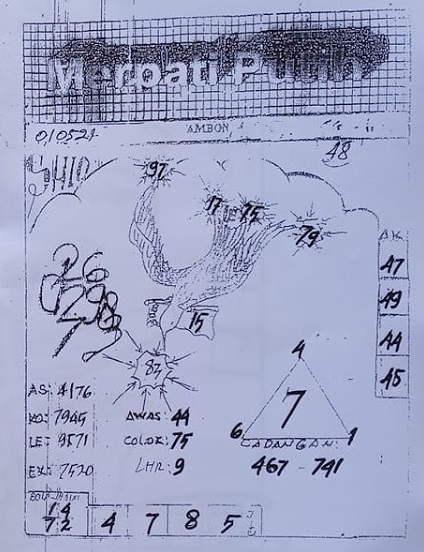 Merpati Putih
AMBON
010524
48
SHIO
97
17
75
79
AK
47
49
44
45
26
15
83
4
7
6
1
CADANGAN:
467 - 741
AS: 4176
KO: 7945
LE: 9571
EK: 7520
AWAS: 44
COLOK: 75
LHR: 9
14
72
4 7 8 5